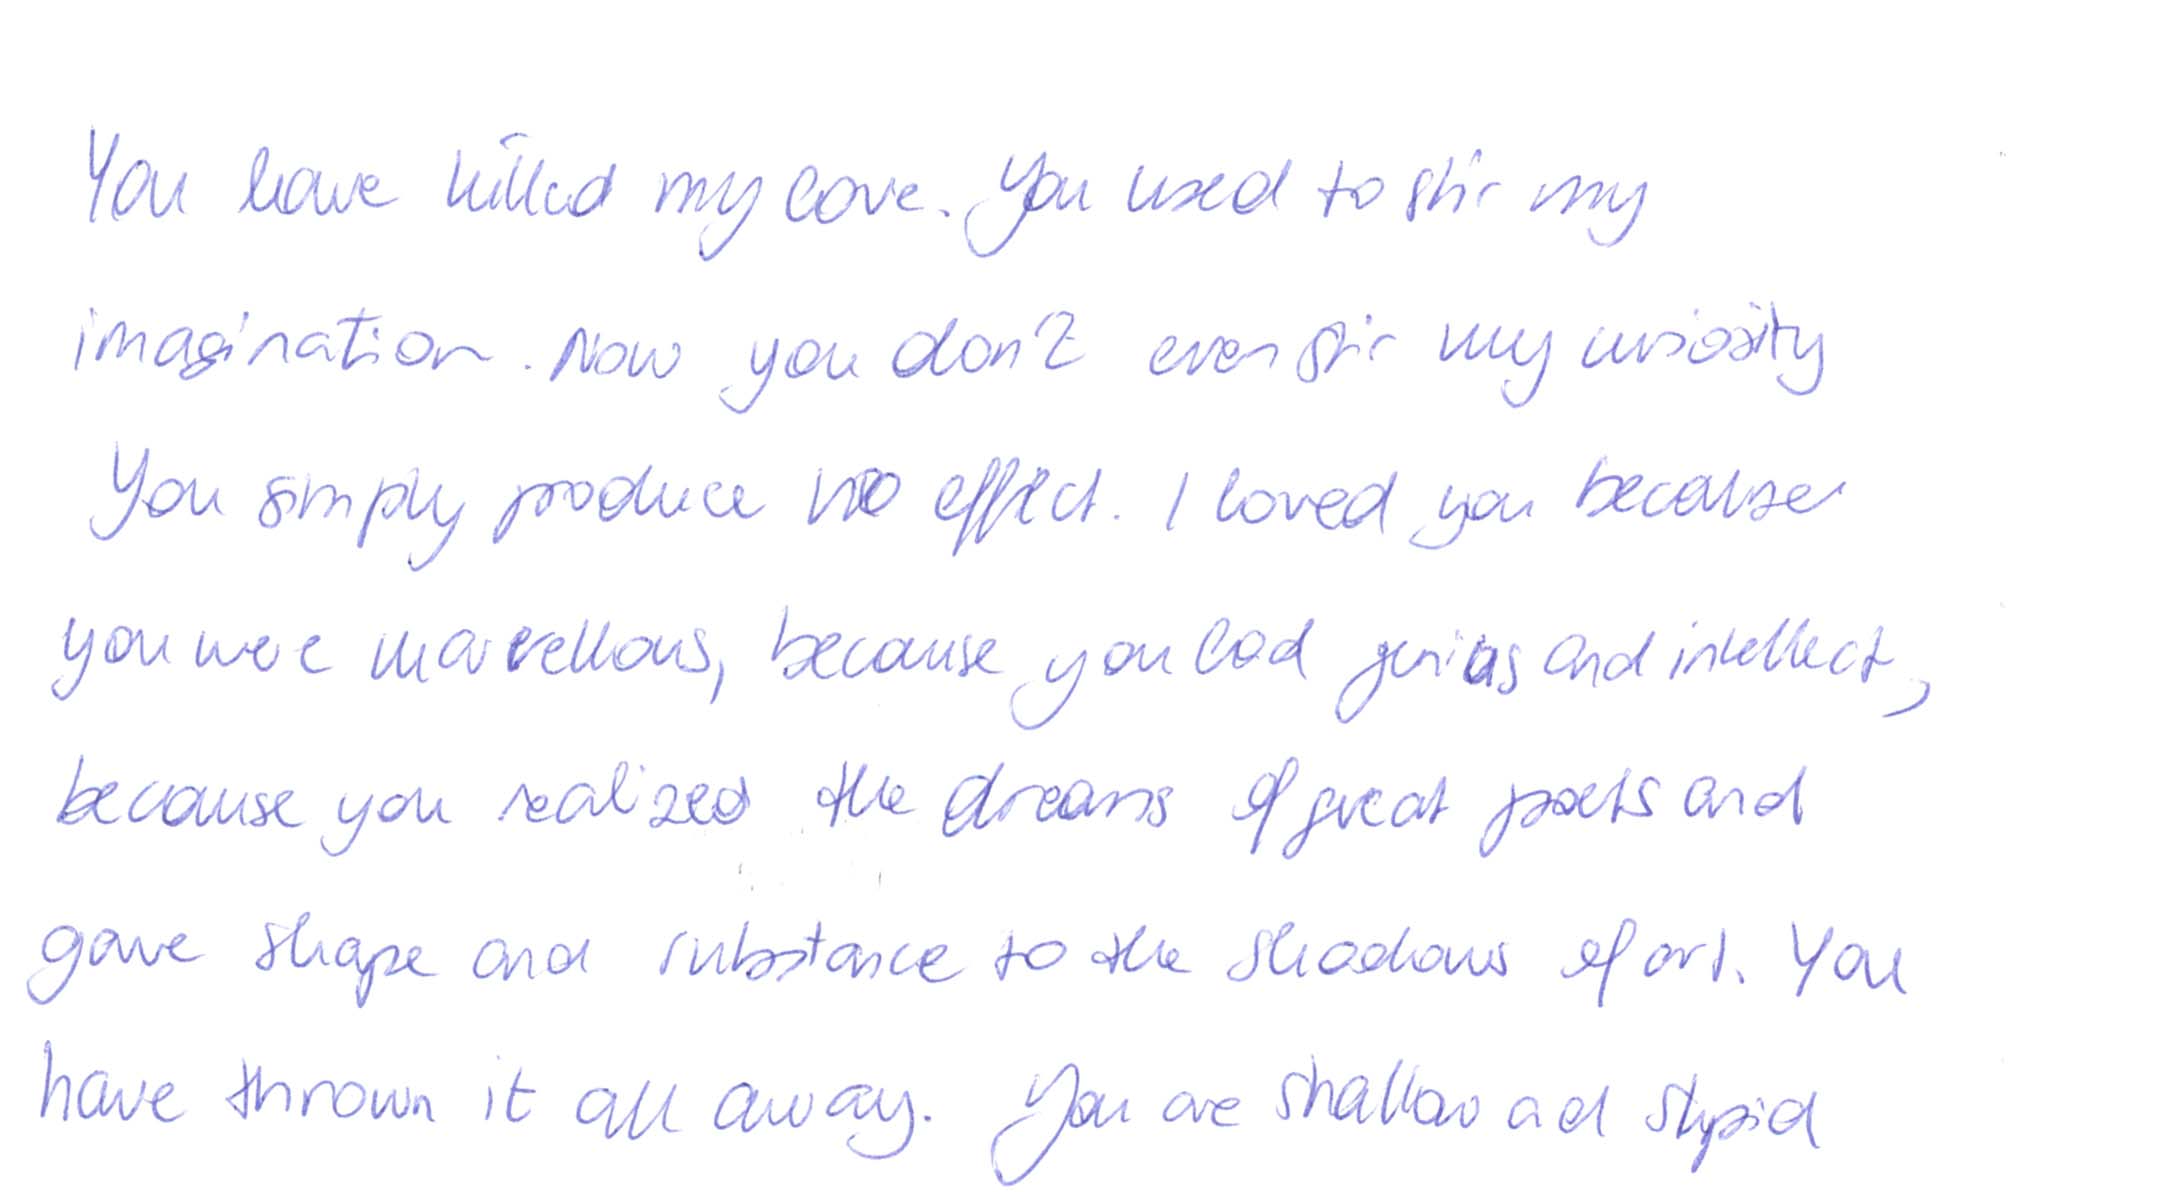 You have killed my love. You used to stir my
imagination. Now you don't even stir my curiosity
You simply produce no effect. I loved you because
you were marvellous, because you had genius and intellect,
because you realized the dreams of great poets and
gave shape and substance to the shadows of art. You
have thrown it all away. You are shallow and stupid